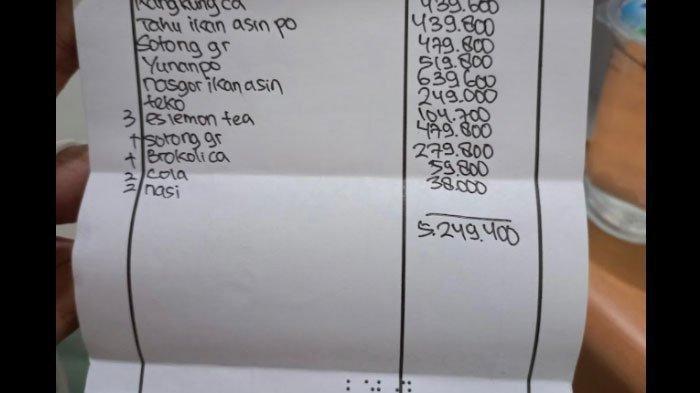 Kangkung ca 439.600
Tahu ikan asin po 439.800
Sotong gr 479.800
Yunanpo 519.800
nasgor ikan asin 639.600
teko 249.000
3 es lemon tea 104.700
+ sotong gr 479.800
+ Brokoli ca 279.800
2 cola 59.800
2 nasi 38.000
5.249.400